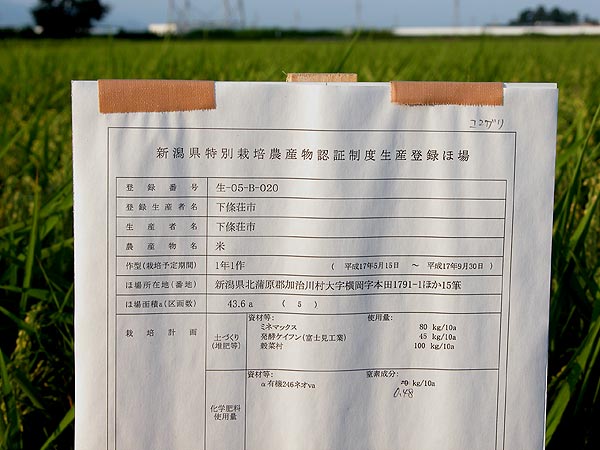 ユコガリ
新潟県特別栽培農産物認証制度生産登録ほ場
登録番号 生-05-B-020
登録生産者名 下條荘市
生産者名 下條荘市
農産物名 米
作型(栽培予定期間) 1年1作 ( 平成17年5月15日 ～ 平成17年9月30日 )
ほ場所在地(番地) 新潟県北蒲原郡加治川村大字横岡字本田1791-1ほか15筆
ほ場面積a(区画数) 43.6 a ( 5 )
栽培計画
土づくり
(堆肥等)
資材等: 使用量:
ミネマックス 80 kg/10a
発酵ケイフン(富士見工業) 45 kg/10a
穀菜村 100 kg/10a
化学肥料
使用量
資材等: 窒素成分:
α有機246ネオva kg/10a
0.48